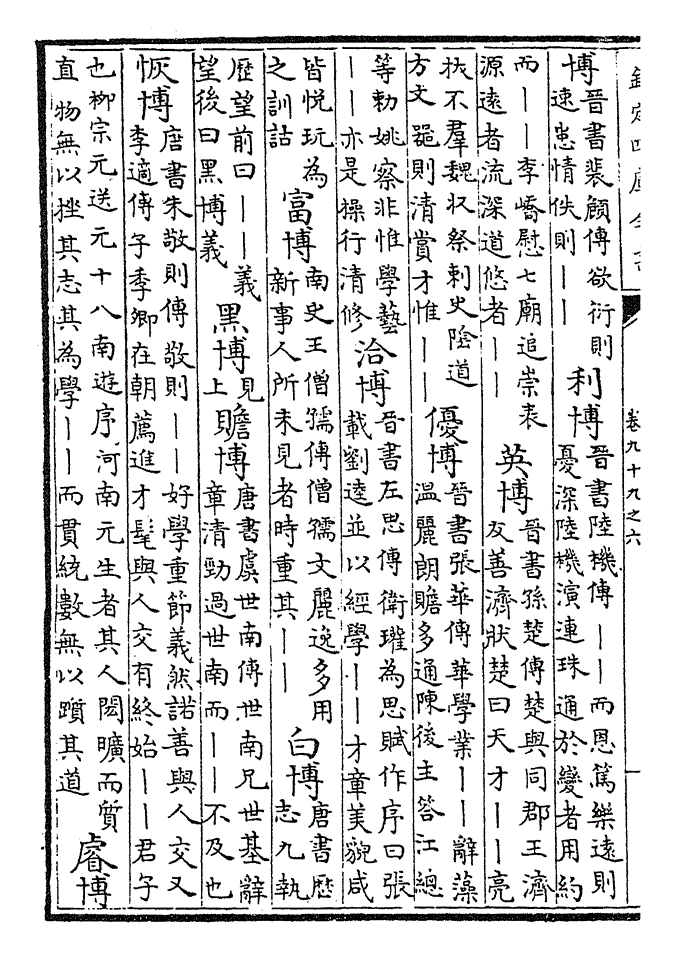 欽定四庫全書
卷九十九之六
一
博
晉書裴頠傳欲衍則
速患情佚則——
利博
晉書陸機傳——而恩篤樂遠則
憂深陸機演連珠通於變者用約
而——李嶠慰七廟追崇表
源遠者流深道悠者——
英博
晉書孫楚傳楚與同郡王濟
友善濟狀楚曰天才——亮
拔不羣魏收祭刺史陰道
方文器則清賞才惟——
優博
晉書張華傳華學業——辭藻
溫麗朗贍多通陳後主答江總
等勅姚察非惟學藝
——亦是操行清修
洽博
晉書左思傳衛瓘為思賦作序曰張
載劉逵並以經學——才章美貌咸
皆悅玩為
之訓詁
富博
南史王僧孺傳僧孺文麗逸多用
新事人所未見者時重其——
白博
唐書歷
志九執
歷望前曰——義
望後曰黑博義
黑博
見
上
贍博
唐書虞世南傳世南兄世基辭
章清勁過世南而——不及也
恢博
唐書朱敬則傳敬則——好學重節義然諾善與人交又
李適傳子季卿在朝薦進才髦與人交有終始——君子
也柳宗元送元十八南遊序河南元生者其人閎曠而質
直物無以挫其志其為學——而貫統數無以躓其道
睿博